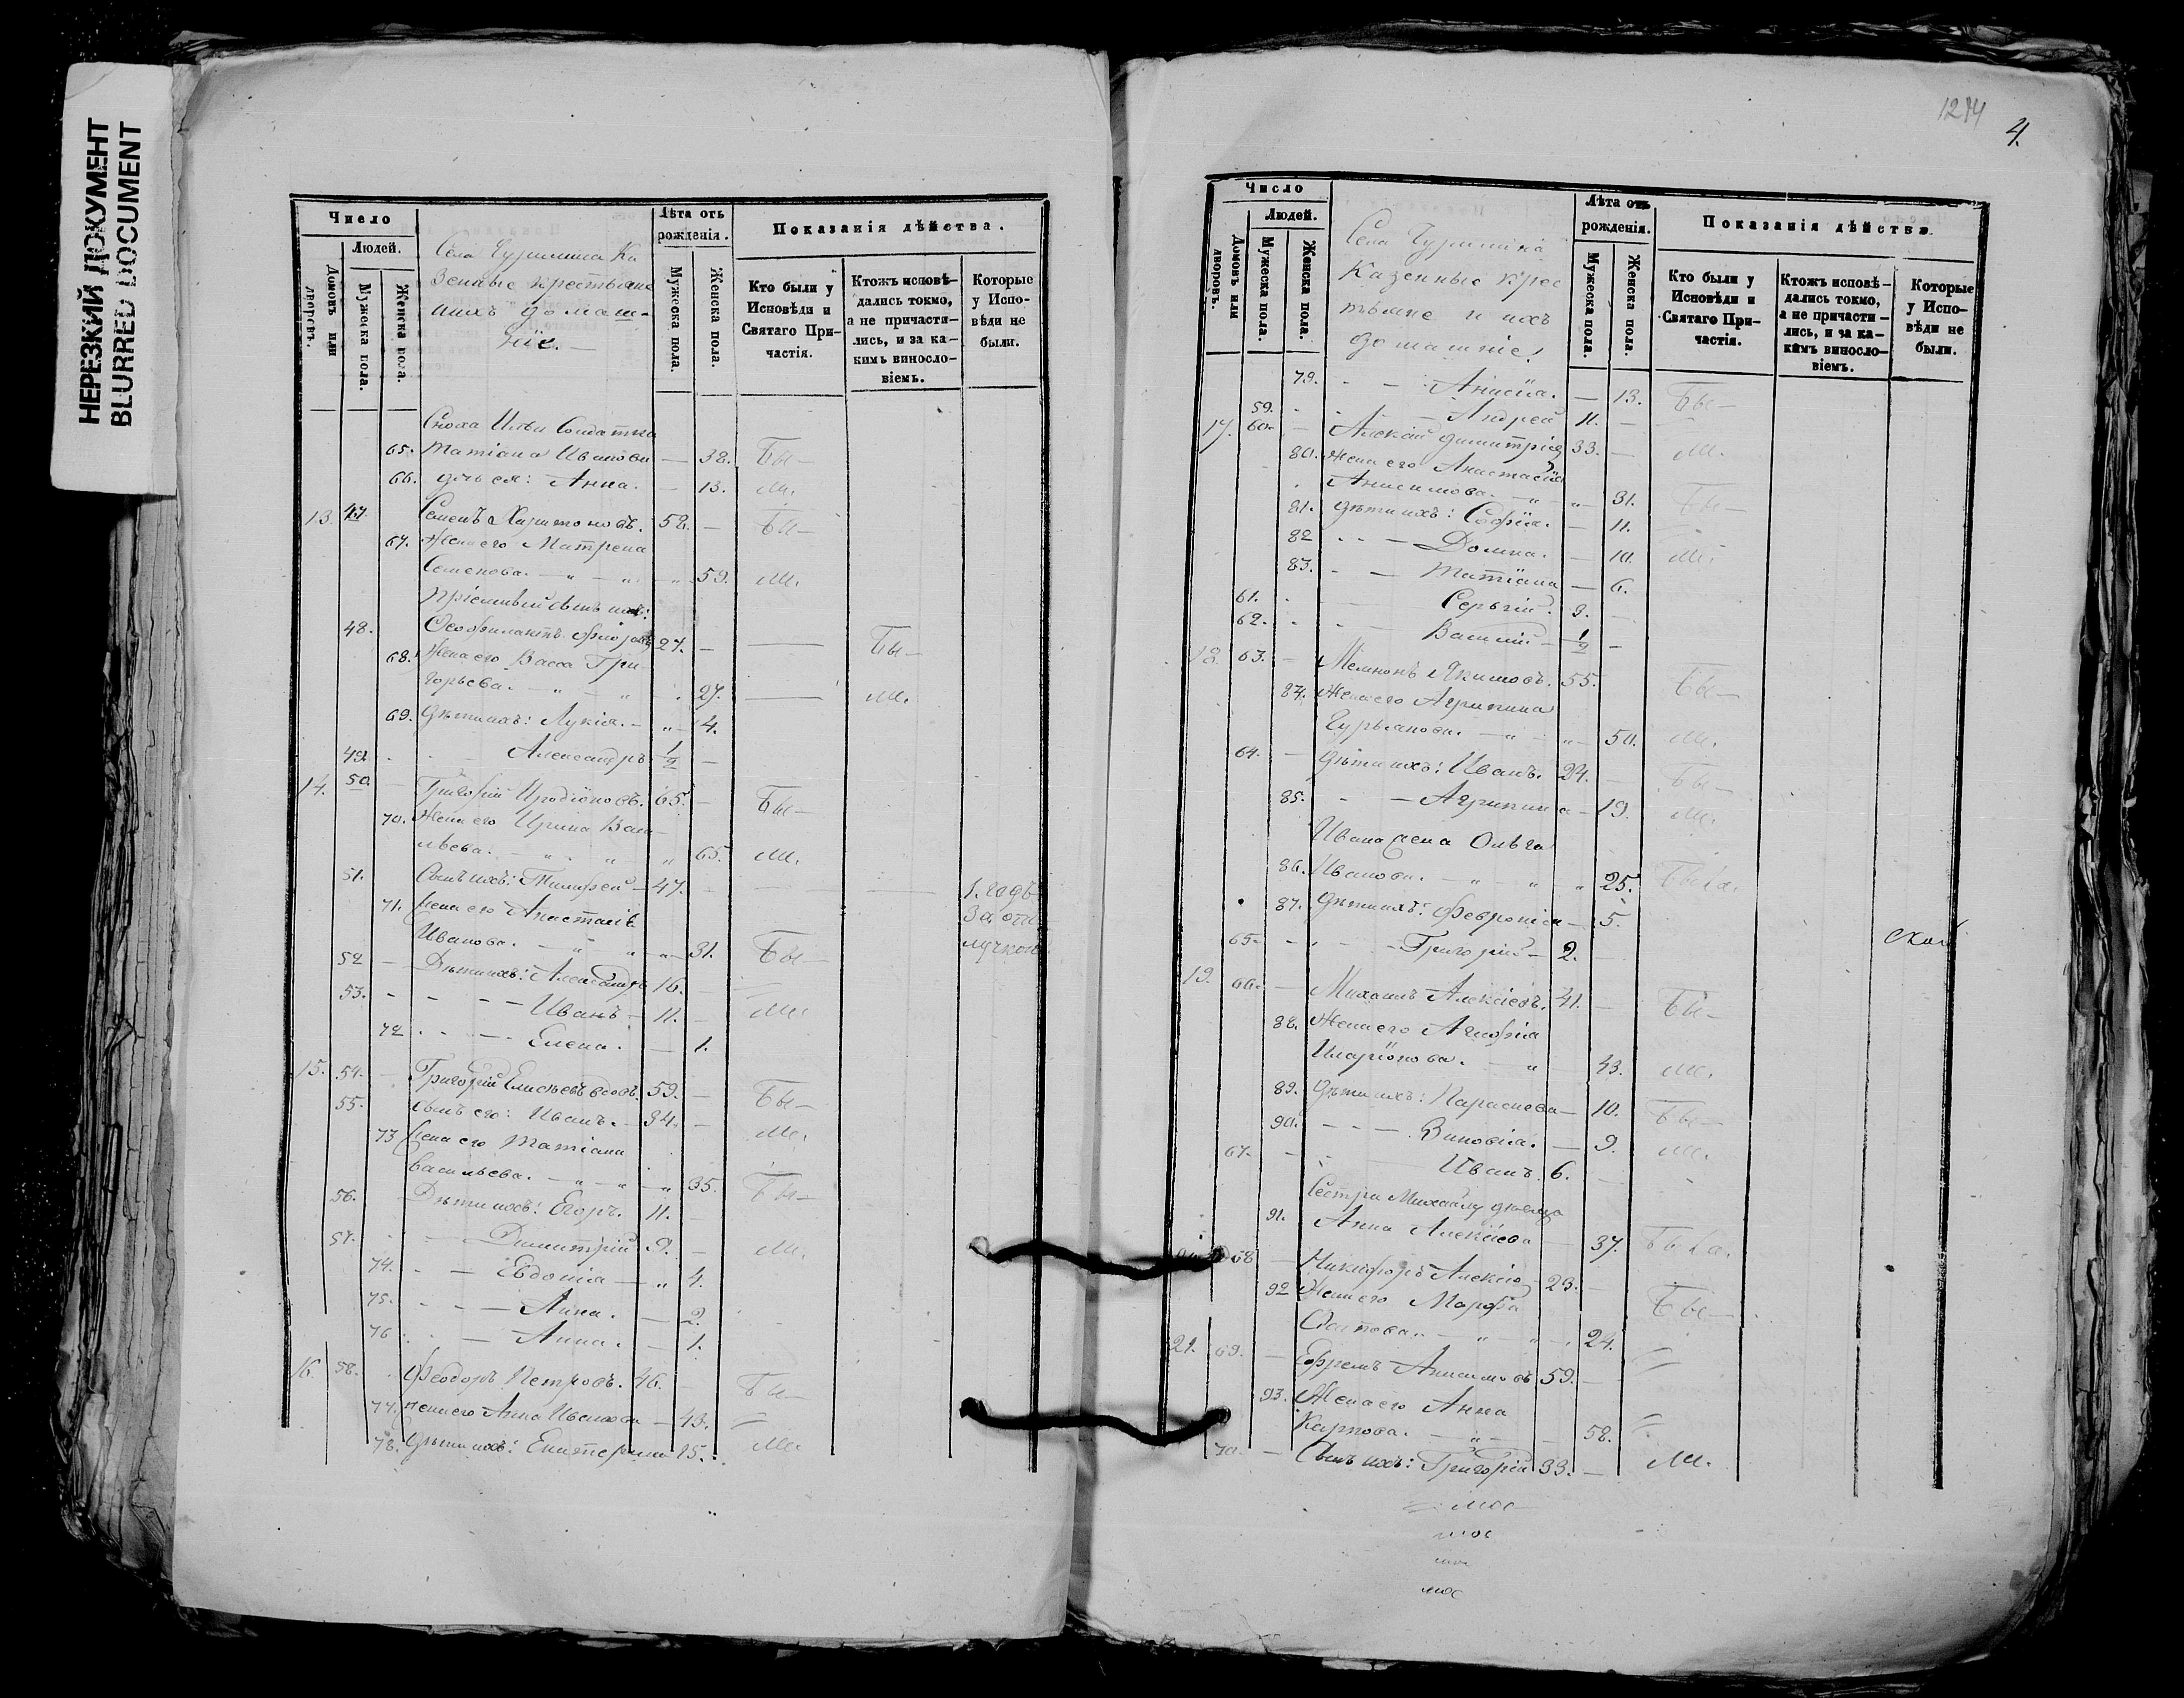 НЕРЕЗКИЙ ДОКУМЕНТ
BLURRED DOCUMENT
Число
Людей.
Домовъ или дворовъ.
Мужеска пола.
Женска пола.
Села Ка
зенные крестьяне
ихъ домаш-
ніе.
Лѣта отъ рожденія.
Мужеска пола.
Женска пола.
Показанія дѣйства.
Кто были у Исповѣди и Святаго При-частія.
Ктожъ исповѣ-дались токмо, а не причасти-лись, и за ка-кимъ винosло-віемъ.
Которые у Испо-вѣди не были.
Сноха Ильи Солдатка
65. Татіана Иванова — 38. Бы—
66. дочь ея: Анна. — 13. ли.
13. 47. Семенъ Харитоновъ. 58. — Бы—
67. Жена его Матрена
Семенова. — „ — „ 59. ли.
Пріемный сынъ ихъ:
48. Феофилактъ 27. — — Бы—
68. Жена его Васса Гри-
горьева. — „ — „ 27. — ли.
69. Дѣти ихъ: Лукія. — „ 4.
49. Александръ 1/2 —
14. 50. Григорій Иродіоновъ. 65. — Бы—
70. Жена его Ирина Васи-
льева. — „ — „ „ 65. ли.
51. Сынъ ихъ: Тимофей — 47. — — — 1. годъ
71. Жена его Анастасія за отъ
Иванова. — „ — „ 31. Бы— лучкою
52 — Дѣти ихъ: Александръ 16. —
53. - - - — Иванъ — 11. — ли.
72 - - — Елена. — 1.
15. 54. Григорій Елисѣевъ вдовъ. 59. — Бы—
55. сынъ его: Иванъ. — 34. — ли.
73 Жена его Татіана
Васильева. — „ — „ — „ 35. Бы—
56. Дѣти ихъ: Егоръ. 11. —
57. — Димитрій 9. — ли.
74. - — Евдокія — „ 4.
75. - - — Анна. — 2.
76 - — Анна. — 1.
16. 58. Феодоръ Петровъ. 46. — Бы—
77. Жена его Анна Иванова — 43. =
78. Дѣти ихъ: Екатерина 15. ли.
1214
4.
Число
Людей.
Домовъ или дворовъ.
Мужеска пола.
Женска пола.
Села
Казенные крес
тьяне и ихъ
домашніе.
Лѣта отъ рожденія.
Мужеска пола.
Женска пола.
Показанія дѣйства.
Кто были у Исповѣди и Святаго При-частія.
Ктожъ исповѣ-дались токмо, а не причасти-лись, и за ка-кимъ винosло-віемъ.
Которые у Испо-вѣди не были.
79. - — Анисія. — 13. Бы—
59. - - — Андрей 11. —
17. 60. — Алексій Димитріев 33. — ли.
80. Жена его Анастасія
Анисимова. — „ — „ 31. Бы—
81. Дѣти ихъ: Софія. — 11.
82 - - — Домна. — 10. ли.
83. - — Татіана — 6.
61. Сергій. 3. —
62. Василій — 1/2 —
18. 63. — Мемнонъ Якимовъ. 55. Бы—
84. Жена его Агрипина
Гурьянова. — „ — „ 50. ли.
64. — Дѣти ихъ: Иванъ. 24. — Бы—
85. - — Агрипина — 19. ли.
Ивана жена Ольга
86. Иванова. — „ — „ „ 25. Была.
87. Дѣти ихъ: Февронія — 5.
65. - - — Григорій — 2. —
19. 66. — Михаилъ Алексіевъ. 41. — Бы—
88. Жена его Агафія
Иларіонова. — „ 43. ли.
89. Дѣти ихъ: Параскева — 10. Бы—
90. - - — Зиновія. — 9. ли.
67. — Иванъ 6. —
Сестра Михаилу дѣвица
91. Анна Алексіева — 37. Была.
68 — Никифоръ Алексіев 23. —
92 Жена его Марфа Бы—
— „ — „ 24.
21. 69. — Ефремъ Анисимовъ 59. — =
93. Жена его Анна
Карпова. — „ — 58. =
70. — Сынъ ихъ: Григорій 33. — ли.